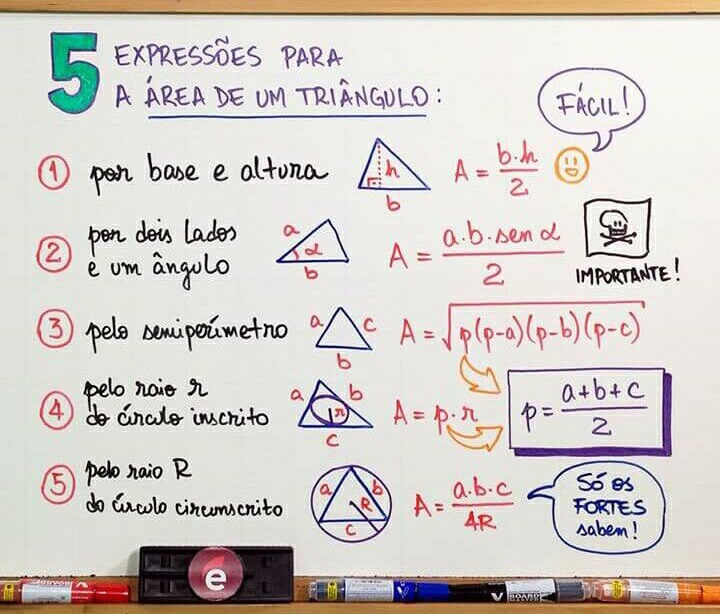 5 EXPRESSÕES PARA
A ÁREA DE UM TRIÂNGULO:
FÁCIL!
1 por base e altura
h
b
A = b.h/2
2 por dois lados
e um ângulo
a
α
b
A = a.b.sen α/2
IMPORTANTE!
3 pelo semiperímetro
a
c
b
A = √p(p-a)(p-b)(p-c)
4 pelo raio r
do círculo inscrito
a
b
r
c
A = p.r
p = a+b+c/2
5 pelo raio R
do círculo circunscrito
a
b
R
c
A = a.b.c/4R
Só os
FORTES
sabem!
e
BOARD